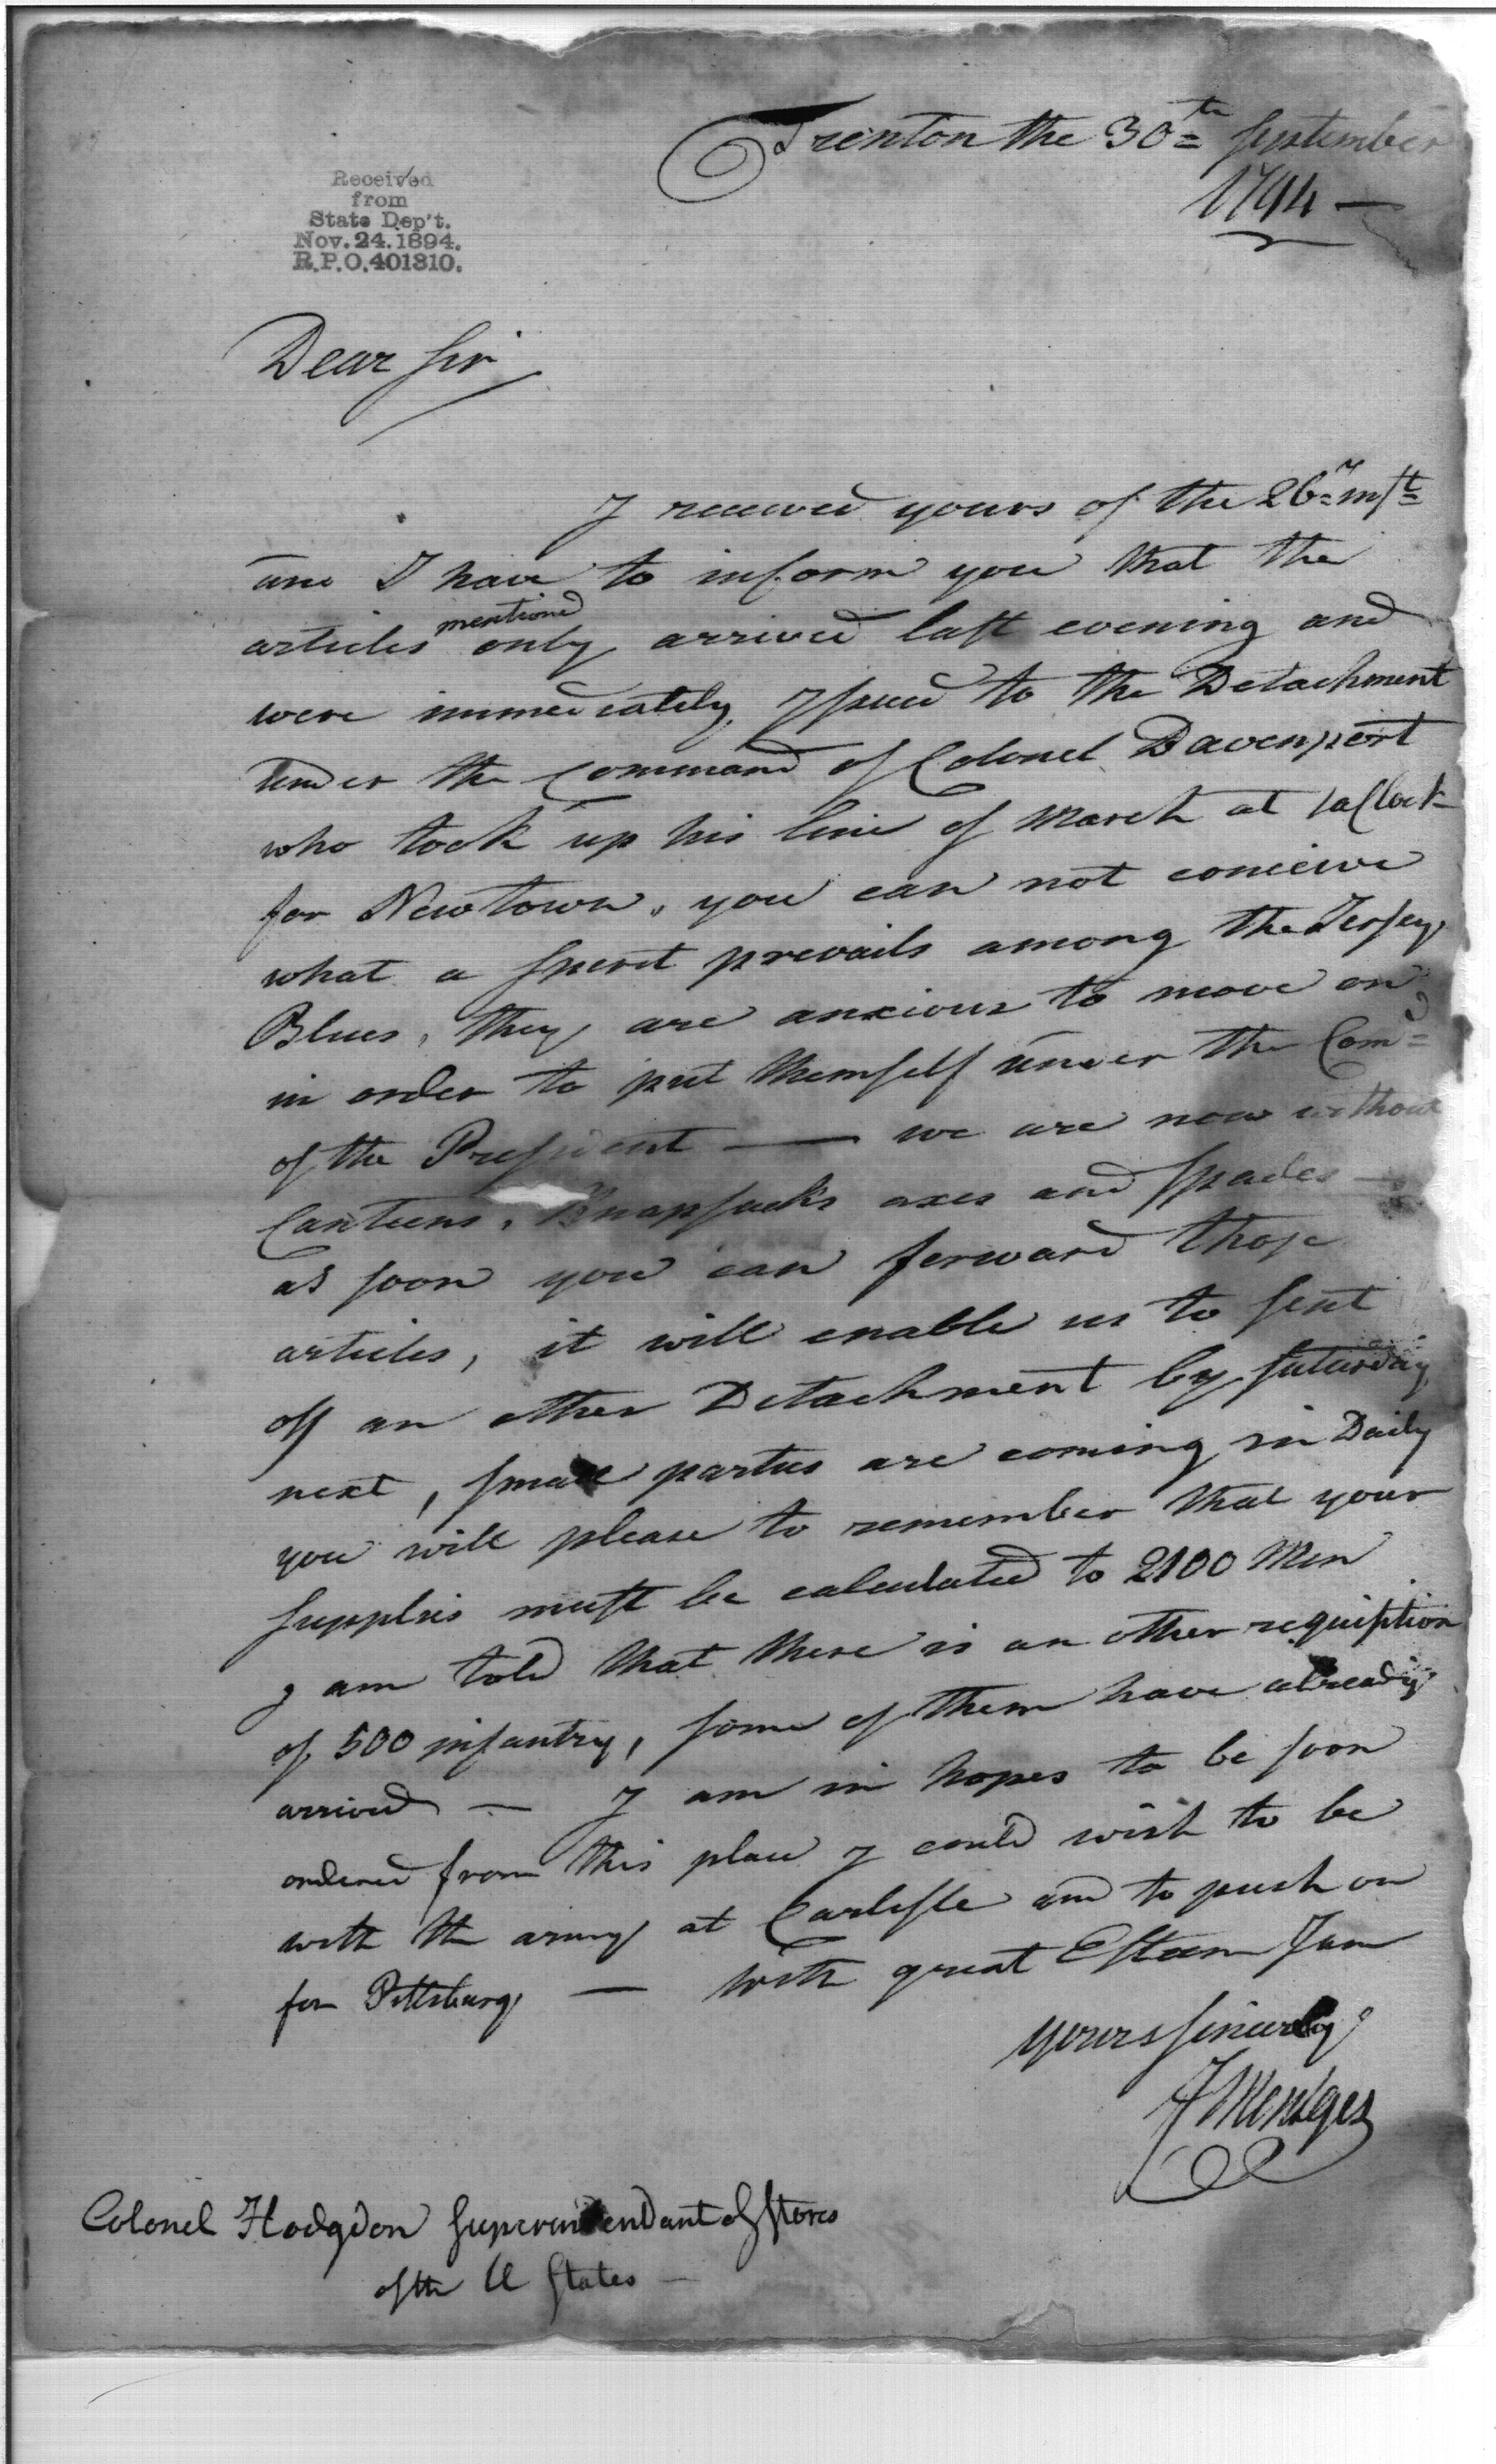 Trenton the 30th September
1794 —
Received
from
State Dep't.
Nov. 24. 1894.
R.P.O. 401310.
Dear Sir
I received yours of the 26th inst
and I have to inform you that the
articles mentioned only arrived last evening and
were immediately Issued to the Detachment
under the Command of Colonel Davenport
who took up his line of March at
for Newtown, you can not conceive
what a spirit prevails among the Jersey
Blues, they are anxious to move on
in order to put themself under the Comd
of the President — we are now without
Canteens, Knapsacks axes and spades —
as soon you can forward those
articles, it will enable us to sent
off an other Detachment by Saturday
next, small parties are coming in Daily
you will please to remember that your
supplies must be calculated to 2100 Men
I am told that there is an other requisition
of 500 infantry, some of them have already
arrived — I am in hopes to be soon
ordered from this place I could wish to be
with the army at Carlisle and to push on
for Pittsburg — with great Esteem I am
yours sincerely
F Mentges
Colonel Hodgdon Superintendant of Stores
of the U States —